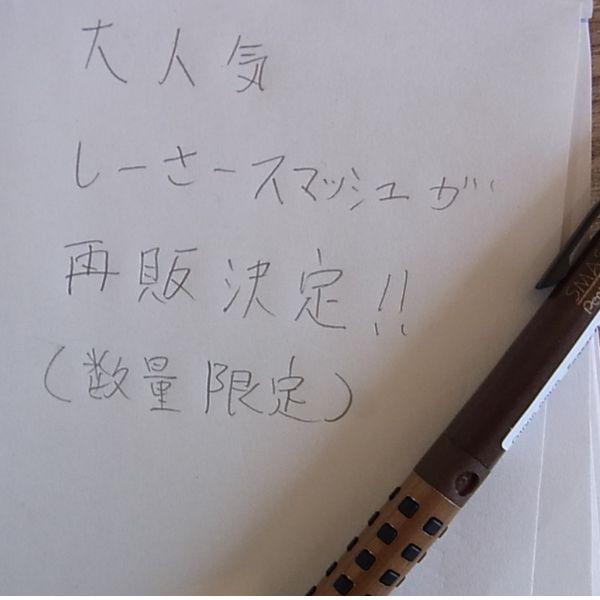 大人気
しーさースマッシュが
再販決定!!
(数量限定)
SMAS
Pen